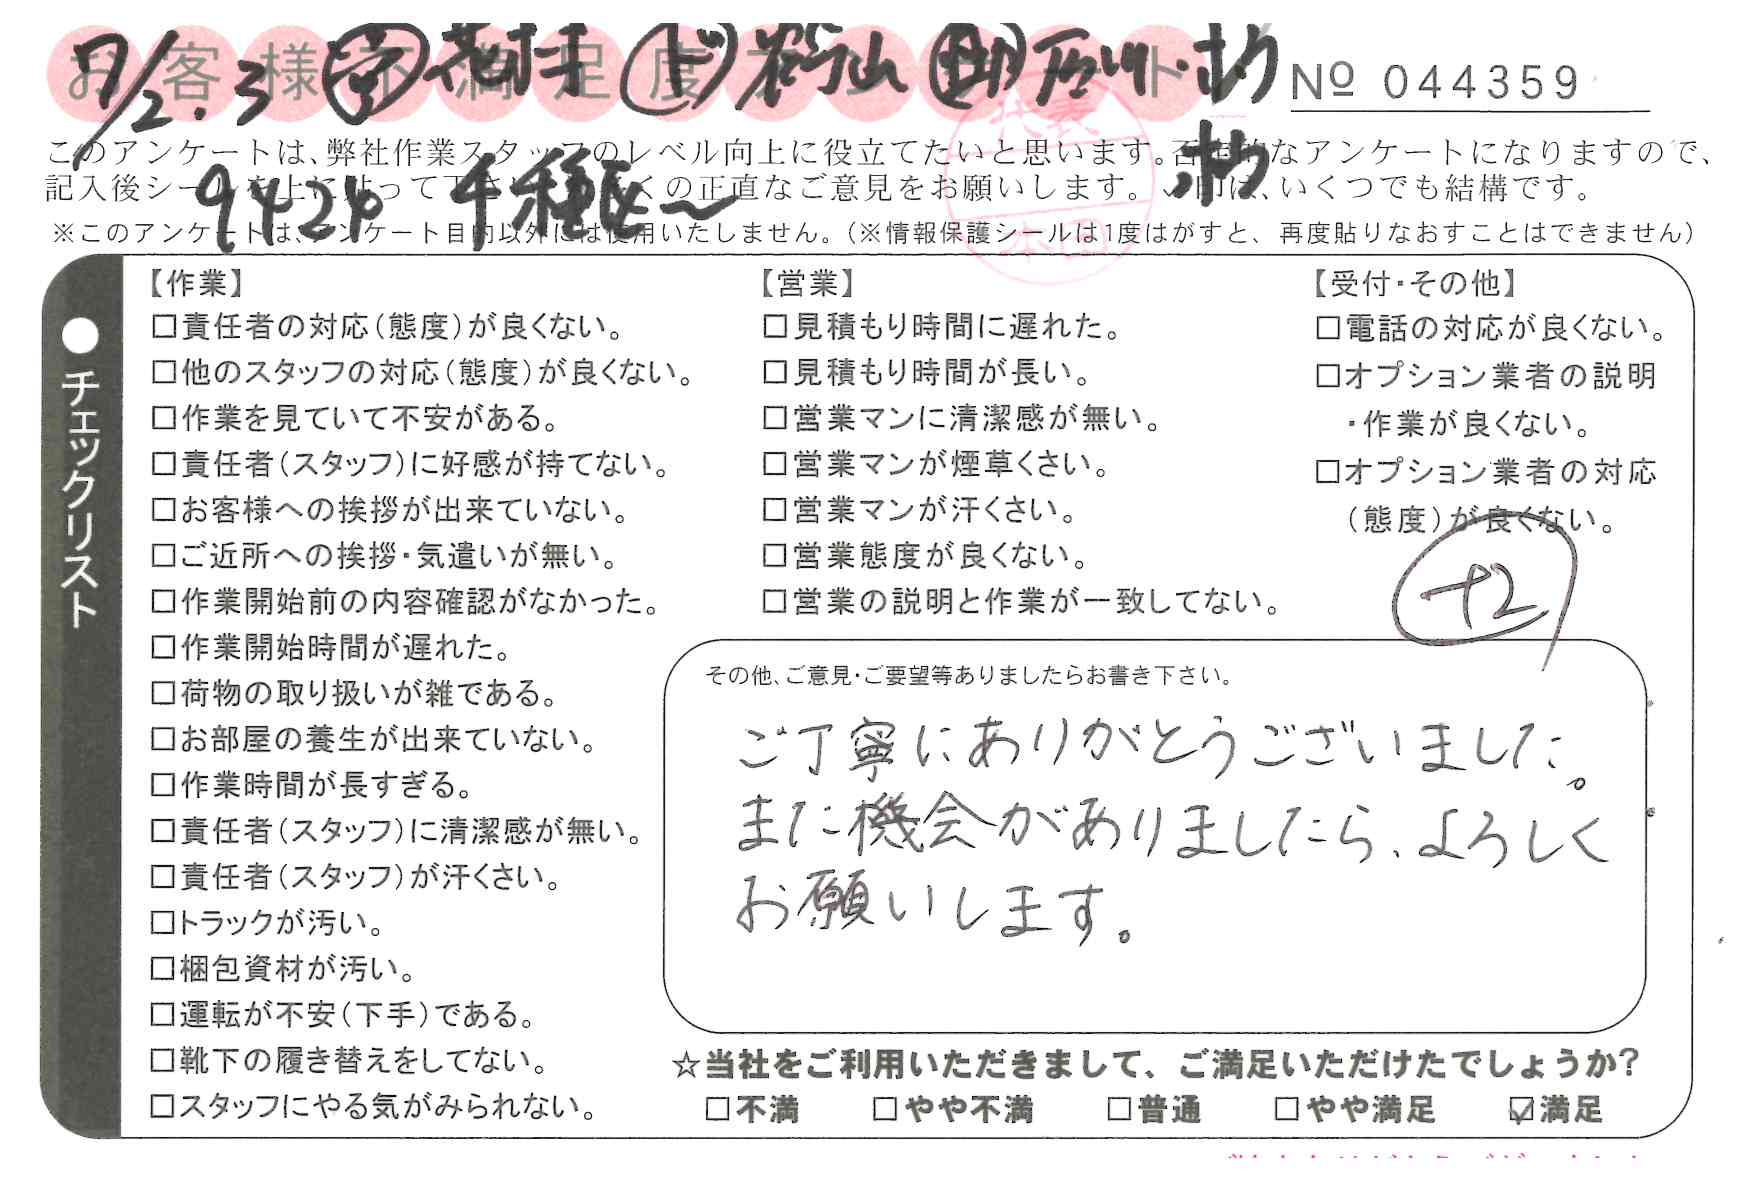 お客様不満足度アンケート
№ 044359
このアンケートは、弊社作業スタッフのレベル向上に役立てたいと思います。否定的なアンケートになりますので、
記入後シールを上に貼って下さい。多くの正直なご意見をお願いします。✓印は、いくつでも結構です。
※このアンケートは、アンケート目的以外には使用いたしません。（※情報保護シールは1度はがすと、再度貼りなおすことはできません）
●チェックリスト
【作業】
□責任者の対応（態度）が良くない。
□他のスタッフの対応（態度）が良くない。
□作業を見ていて不安がある。
□責任者（スタッフ）に好感が持てない。
□お客様への挨拶が出来ていない。
□ご近所への挨拶・気遣いが無い。
□作業開始前の内容確認がなかった。
□作業開始時間が遅れた。
□荷物の取り扱いが雑である。
□お部屋の養生が出来ていない。
□作業時間が長すぎる。
□責任者（スタッフ）に清潔感が無い。
□責任者（スタッフ）が汗くさい。
□トラックが汚い。
□梱包資材が汚い。
□運転が不安（下手）である。
□靴下の履き替えをしてない。
□スタッフにやる気がみられない。
【営業】
□見積もり時間に遅れた。
□見積もり時間が長い。
□営業マンに清潔感が無い。
□営業マンが煙草くさい。
□営業マンが汗くさい。
□営業態度が良くない。
□営業の説明と作業が一致してない。
【受付・その他】
□電話の対応が良くない。
□オプション業者の説明
・作業が良くない。
□オプション業者の対応
（態度）が良くない。
+2
その他、ご意見・ご要望等ありましたらお書き下さい。
ご丁寧にありがとうございました。
また機会がありましたら、よろしく
お願いします。
☆当社をご利用いただきまして、ご満足いただけたでしょうか?
□不満 □やや不満 □普通 □やや満足 ☑満足